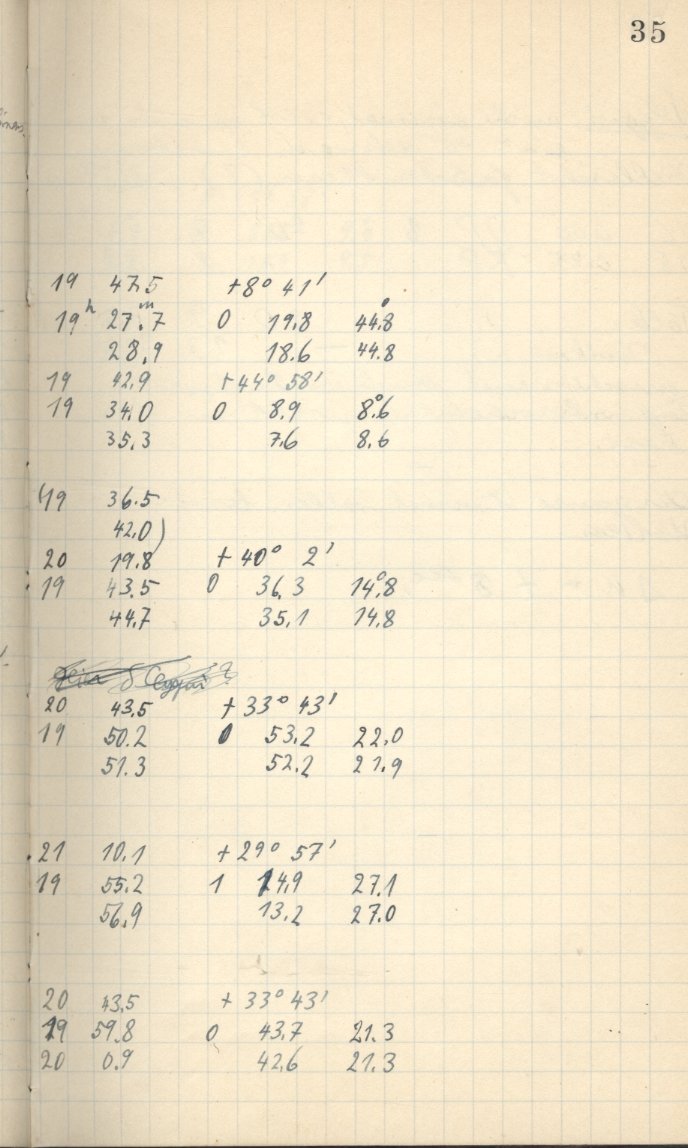 35
19 47.5 +8° 41'
19h 27.m7 0 19.8 44.°8
28.9 18.6 44.8
19 42.9 +44° 58'
19 34.0 0 8.9 8.°6
35.3 7.6 8.6
(19 36.5
42.0)
20 19.8 +40° 2'
19 43.5 0 36.3 14.°8
44.7 35.1 14.8
20 43.5 +33° 43'
19 50.2 0 53.2 22.0
51.3 52.2 21.9
21 10.1 +29° 57'
19 55.2 1 14.9 27.1
56.9 13.2 27.0
20 43.5 +33° 43'
19 59.8 0 43.7 21.3
20 0.9 42.6 21.3